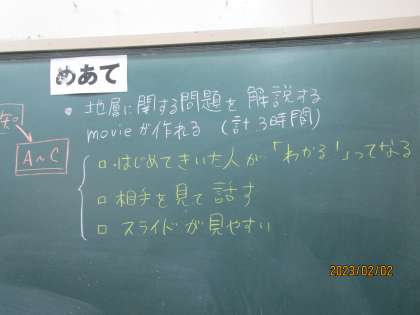 めあて
• 地層に関する問題を解説する
movieが作れる（計3時間）
A~C
□ はじめてきいた人が「わかる!」ってなる
□ 相手を見て話す
□ スライドが見やすい
2023/02/02